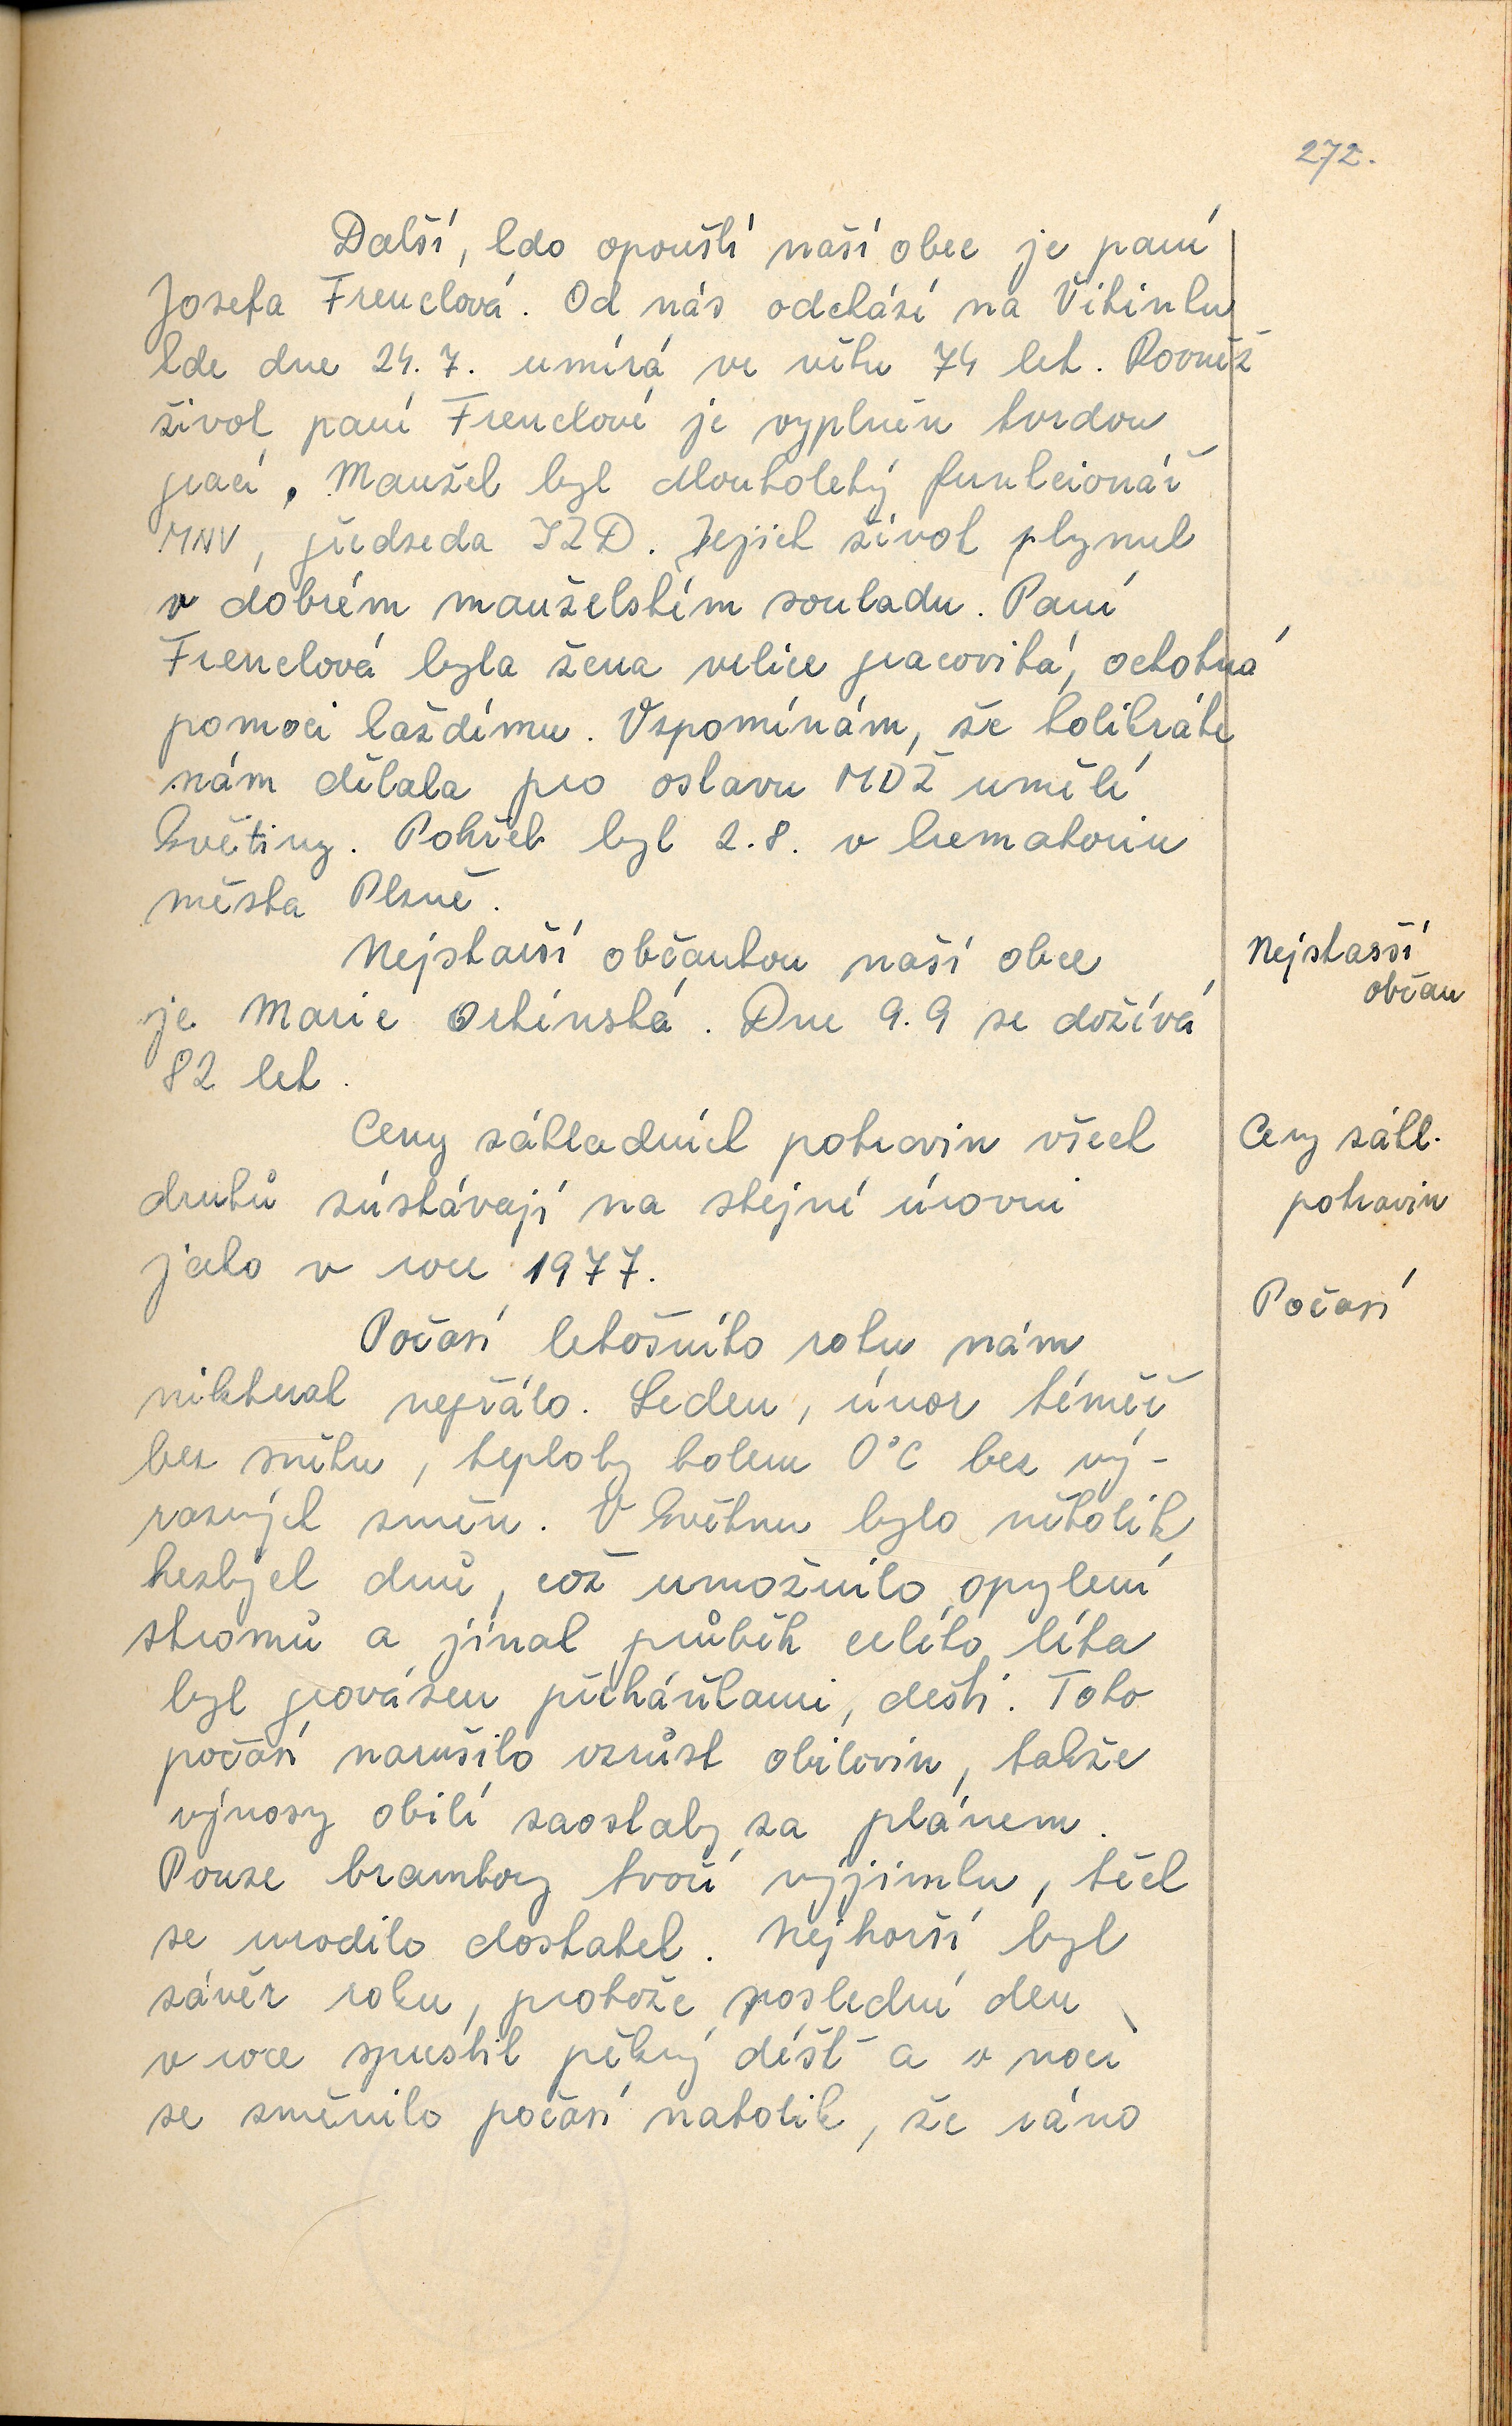 272.
Další, kdo opouští naší obec je paní
Josefa Frenclová. Od nás odchází na Vítinku
kde dne 24. 7. umírá ve věku 74 let. Rovněž
život paní Frenclové je vyplněn tvrdou
prací. Manžel byl dlouholetý funkcionář
MNV, předseda JZD. Jejich život plynul
v dobrém manželském souladu. Paní
Frenclová byla žena velice pracovitá, ochotná
pomoci každému. Vzpomínám, že kolikráte
nám dělala pro oslavu MDŽ umělé
květiny. Pohřeb byl 2.8. v krematoriu
města Plzně.
Nejstarší občankou naší obce
je Marie . Dne 9.9 se dožívá
82 let.
Nejstarší
občan
Ceny základních potravin všech
druhů zústávají na stejné úrovni
jako v roce 1977.
Ceny zákl.
potravin
Počasí letošního roku nám
nikterak nepřálo. Leden, únor téměř
bez sněhu, teploty kolem 0°C bez vý-
razných změn. V květnu bylo několik
hezkých dnů, což umožnilo opylení
stromů a jinak průběh celého léta
byl provázen přeháňkami, dešti. Toto
počasí narušilo vzrůst obilovin, takže
výnosy obilí zaostaly za plánem.
Pouze brambory tvoří vyjimku, těch
se urodilo dostatek. Nejhorší byl
závěr roku, protože poslední den
v roce spustil pěkný déšť a v noci
se změnilo počasí natolik, že ráno
Počasí